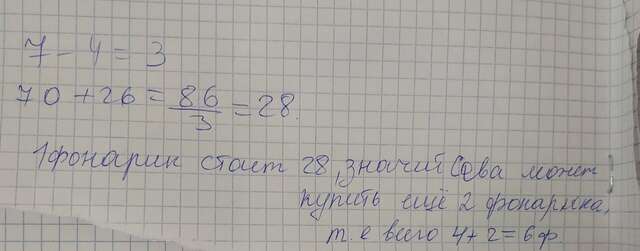 7 - 4 = 3
70 + 26 = 86/3 = 28.
1 фонарик стоит 28, значит Сева может
купить ещё 2 фонарика,
т. е всего 4 + 2 = 6 ф